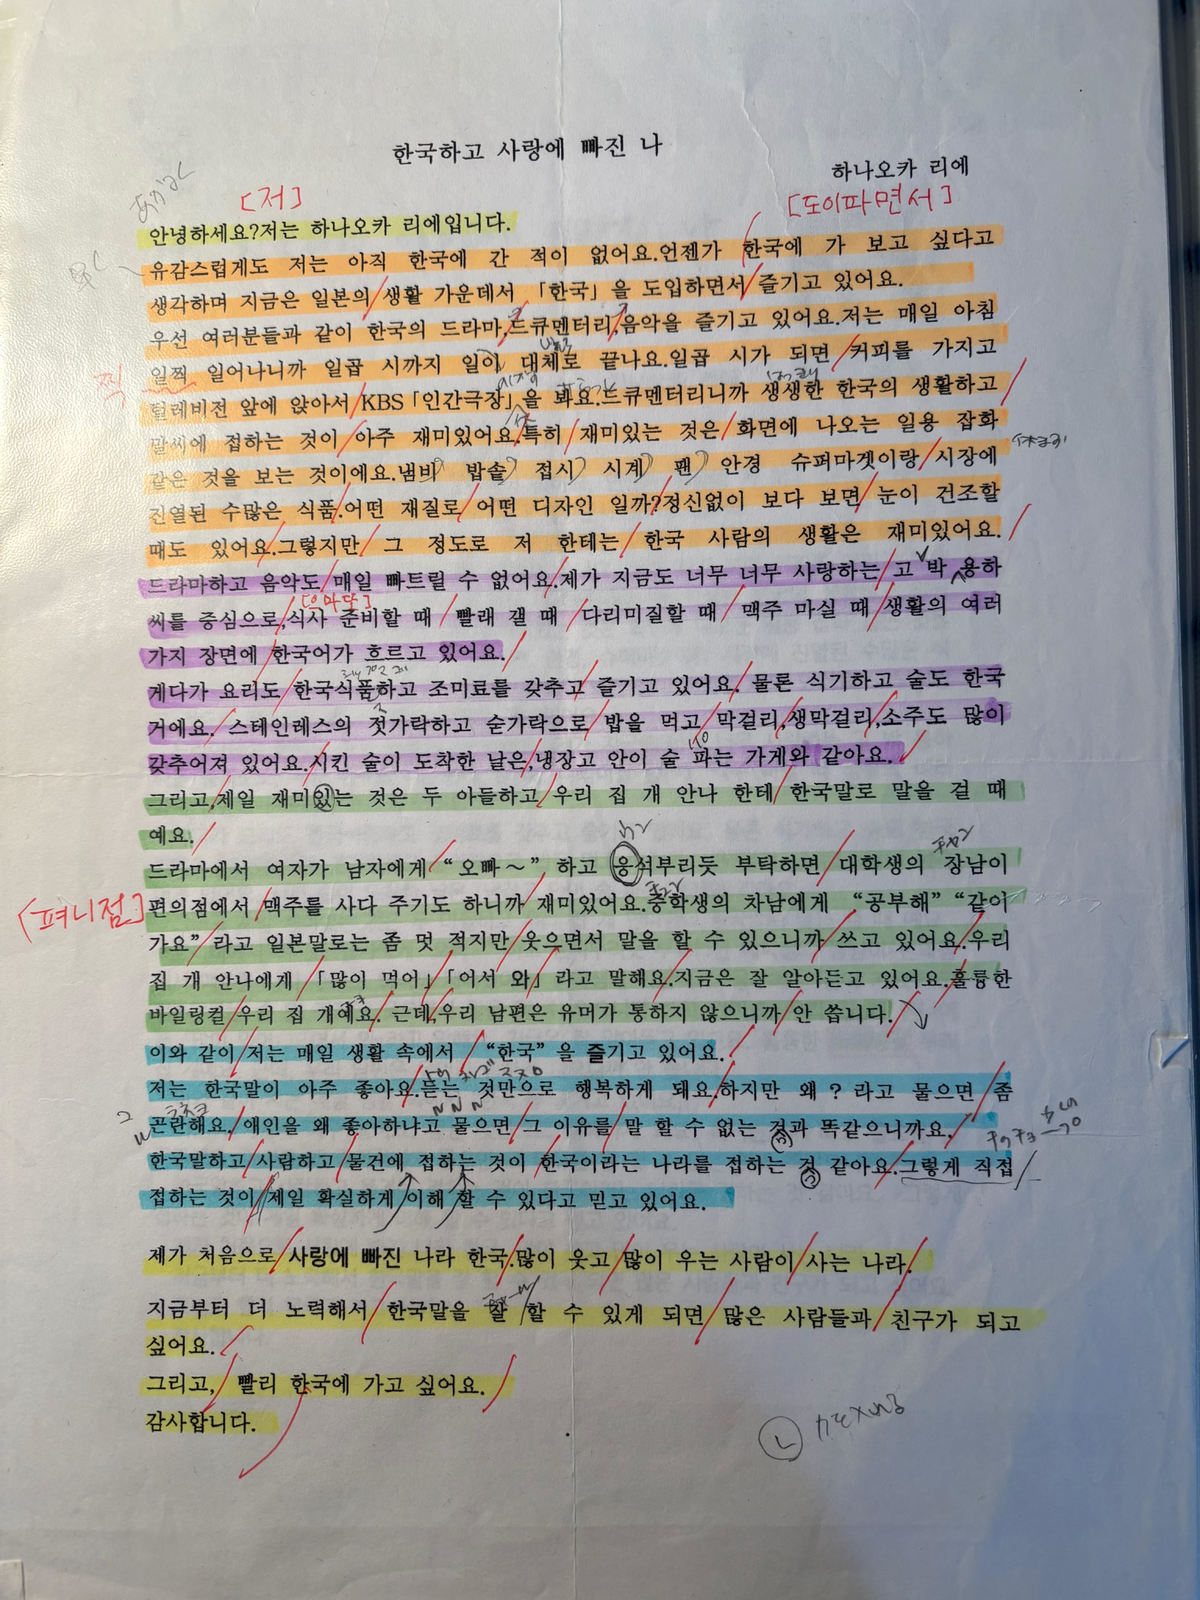 한국하고 사랑에 빠진 나
하나오카 리에
[저]
[도이파면서]
안녕하세요?저는 하나오카 리에입니다.
유감스럽게도 저는 아직 한국에 간 적이 없어요.언젠가 한국에 가 보고 싶다고
생각하며 지금은 일본의 생활 가운데서 「한국」을 도입하면서 즐기고 있어요.
우선 여러분들과 같이 한국의 드라마,드큐멘터리,음악을 즐기고 있어요.저는 매일 아침
일찍 일어나니까 일곱 시까지 일이 대체로 끝나요.일곱 시가 되면 커피를 가지고
찍
털레비전 앞에 앉아서 KBS「인간극장」을 봐요.드큐멘터리니까 생생한 한국의 생활하고
말씨에 접하는 것이 아주 재미있어요.특히 재미있는 것은 화면에 나오는 일용 잡화
같은 것을 보는 것이에요.냄비 밥솥 접시 시계 팬 안경 슈퍼마겟이랑 시장에
진열된 수많은 식품.어떤 재질로 어떤 디자인 일까?정신없이 보다 보면 눈이 건조할
때도 있어요.그렇지만 그 정도로 저 한테는 한국 사람의 생활은 재미있어요.
드라마하고 음악도 매일 빠트릴 수 없어요.제가 지금도 너무 너무 사랑하는 고 박 용하
[으마도]
씨를 중심으로,식사 준비할 때 빨래 갤 때 다리미질할 때 맥주 마실 때 생활의 여러
가지 장면에 한국어가 흐르고 있어요.
게다가 요리도 한국식품하고 조미료를 갖추고 즐기고 있어요. 물론 식기하고 술도 한국
거에요. 스테인레스의 젓가락하고 숟가락으로 밥을 먹고 막걸리,생막걸리,소주도 많이
갖추어져 있어요.시킨 술이 도착한 날은,냉장고 안이 술 파는 가게와 같아요.
그리고,제일 재미있는 것은 두 아들하고 우리 집 개 안나 한테 한국말로 말을 걸 때
예요.
드라마에서 여자가 남자에게 “오빠～” 하고 응석부리듯 부탁하면 대학생의 장남이
[펴니점]
편의점에서 맥주를 사다 주기도 하니까 재미있어요.중학생의 차남에게 “공부해” “같이
가요” 라고 일본말로는 좀 멋 적지만 웃으면서 말을 할 수 있으니까 쓰고 있어요.우리
집 개 안나에게 「많이 먹어」「어서 와」라고 말해요.지금은 잘 알아듣고 있어요.훌륭한
바일링컬 우리 집 개예요. 근데,우리 남편은 유머가 통하지 않으니까 안 씁니다.
이와 같이 저는 매일 생활 속에서 “한국”을 즐기고 있어요.
저는 한국말이 아주 좋아요.듣는 것만으로 행복하게 돼요.하지만 왜 ? 라고 물으면 좀
곤란해요. 애인을 왜 좋아하냐고 물으면 그 이유를 말 할 수 없는 것과 똑같으니까요.
한국말하고 사람하고 물건에 접하는 것이 한국이라는 나라를 접하는 것 같아요.그렇게 직접
접하는 것이 제일 확실하게 이해 할 수 있다고 믿고 있어요.
제가 처음으로 사랑에 빠진 나라 한국.많이 웃고 많이 우는 사람이 사는 나라.
지금부터 더 노력해서 한국말을 잘 할 수 있게 되면 많은 사람들과 친구가 되고
싶어요.
그리고, 빨리 한국에 가고 싶어요.
감사합니다.